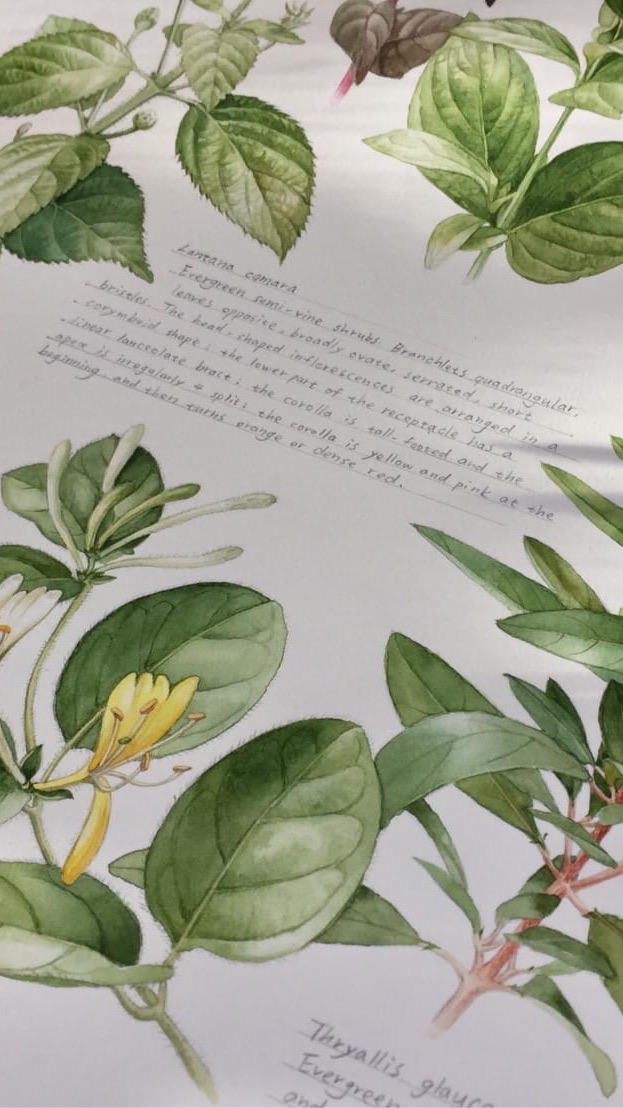 Lantana camara
Evergreen semi-vine shrubs. Branchlets quadrangular,
leaves opposite, broadly ovate, serrated, short
bristles. The head-shaped inflorescences are arranged in a
corymboid shape; the lower part of the receptacle has a
linear lanceolate bract; the corolla is tall-footed and the
apex is irregularly 4 split; the corolla is yellow and pink at the
beginning and then turns orange or dense red.
Thryallis glauca
Evergreen
and